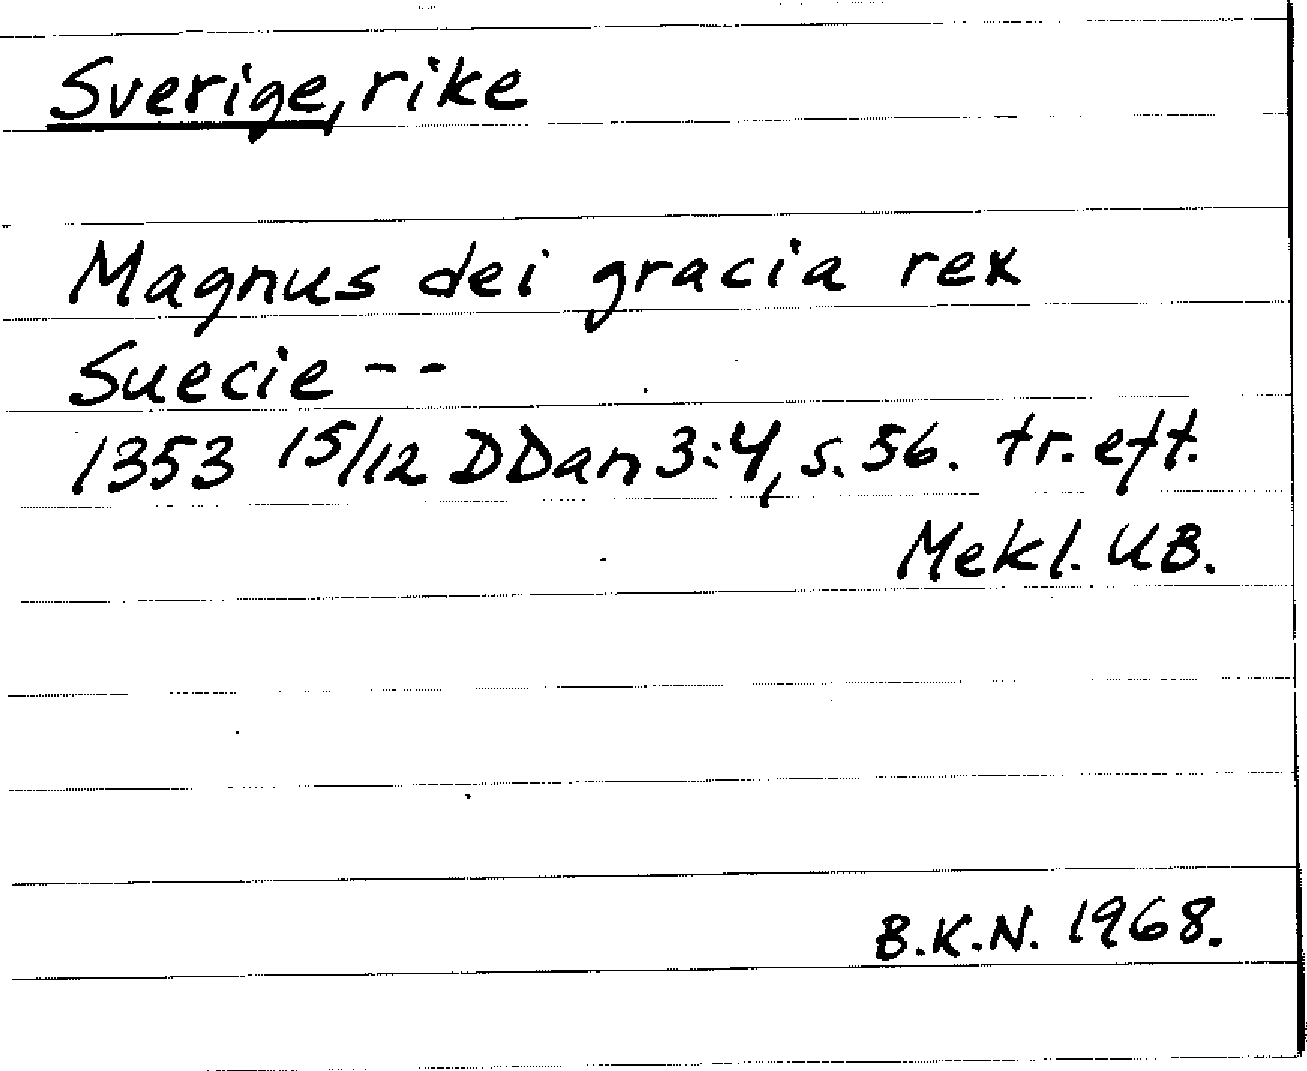 Sverige, rike
Magnus dei gracia rex
Suecie --
1353 15/12 DDan 3:4, s. 56. tr. eft.
Mekl. UB.
B.K.N. 1968.